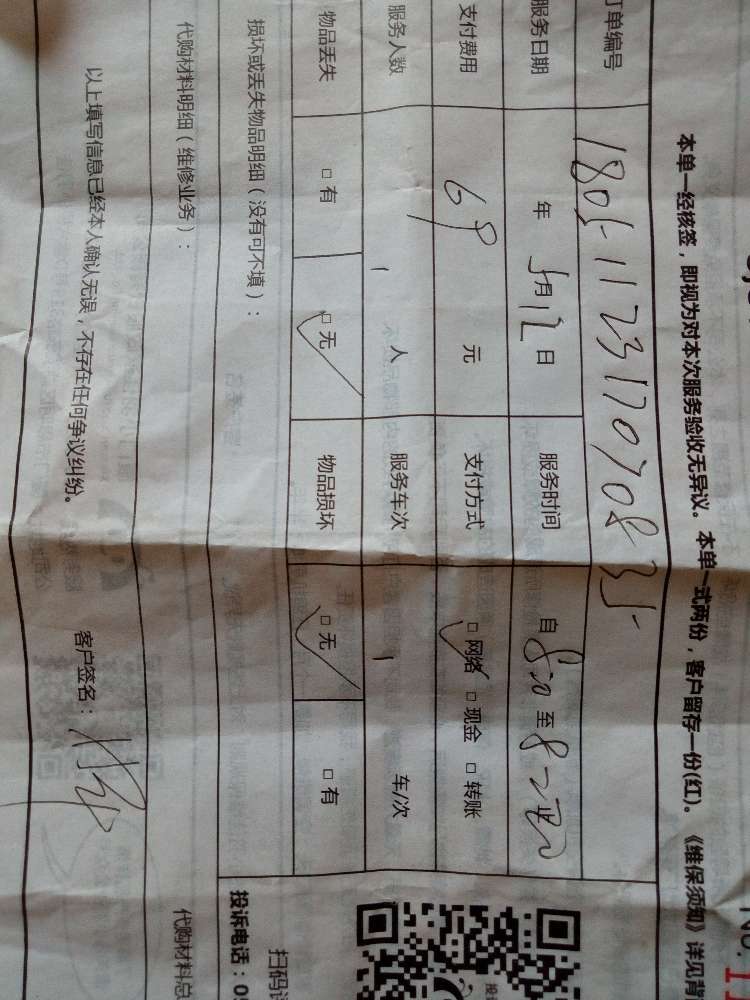 本单一经核签，即视为对本次服务验收无异议。 本单一式两份，客户留存一份(红)。 《维保须知》详见背
订单编号 1805112317070835
服务日期 年 5月12日 服务时间 自 8:20 至
支付费用 69 元 支付方式 □ 网络 □ 现金 □ 转账
服务人数 1 人 服务车次 1 车/次
物品丢失 □ 有 □ 无 物品损坏 □ 无 □ 有
损坏或丢失物品明细（没有可不填）：
代购材料明细（维修业务）：
代购材料总
以上填写信息已经本人确认无误，不存在任何争议纠纷。 客户签名：
投诉电话：05